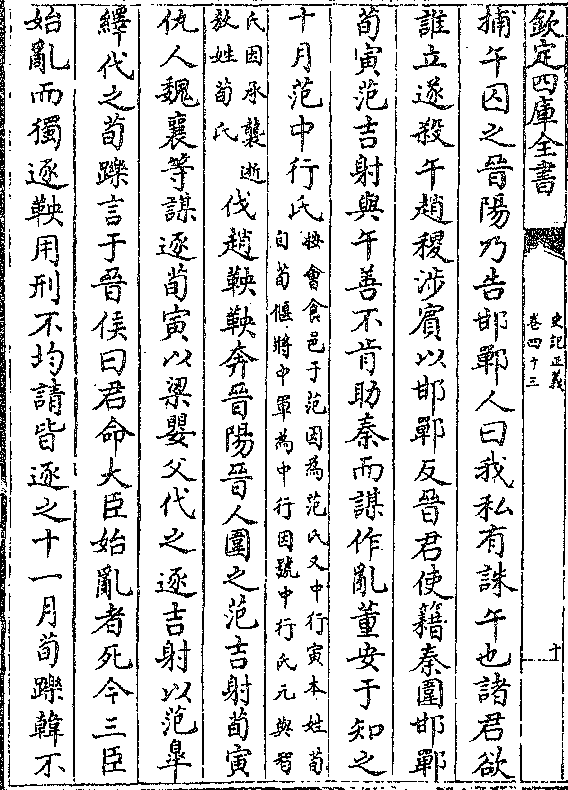 欽定四庫全書
史記正義
卷四十三
十
捕午囚之晉陽乃告邯鄲人曰我私有誅午也諸君欲
誰立遂殺午趙稷涉賓以邯鄲反晉君使籍秦圍邯鄲
荀寅范吉射與午善不肯助秦而謀作亂董安于知之
十月范中行氏按會食邑于范因為范氏又中行寅本姓荀
自荀偃將中軍為中行因號中行氏元與智
氏因承襲逝
敖姓荀氏伐趙鞅鞅奔晉陽晉人圍之范吉射荀寅
仇人魏襄等謀逐荀寅以梁嬰父代之逐吉射以范臯
繹代之荀躒言于晉侯曰君命大臣始亂者死今三臣
始亂而獨逐鞅用刑不均請皆逐之十一月荀躒韓不